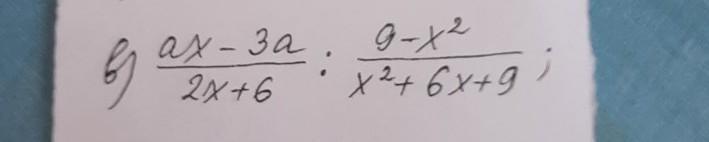 в) (ax - 3a)/(2x + 6) : (9 - x²)/(x² + 6x + 9) ;